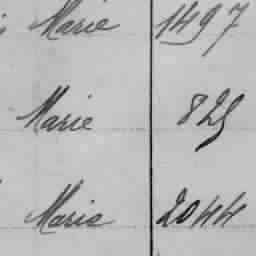 Marie 1497
Marie 825
Marie 2044